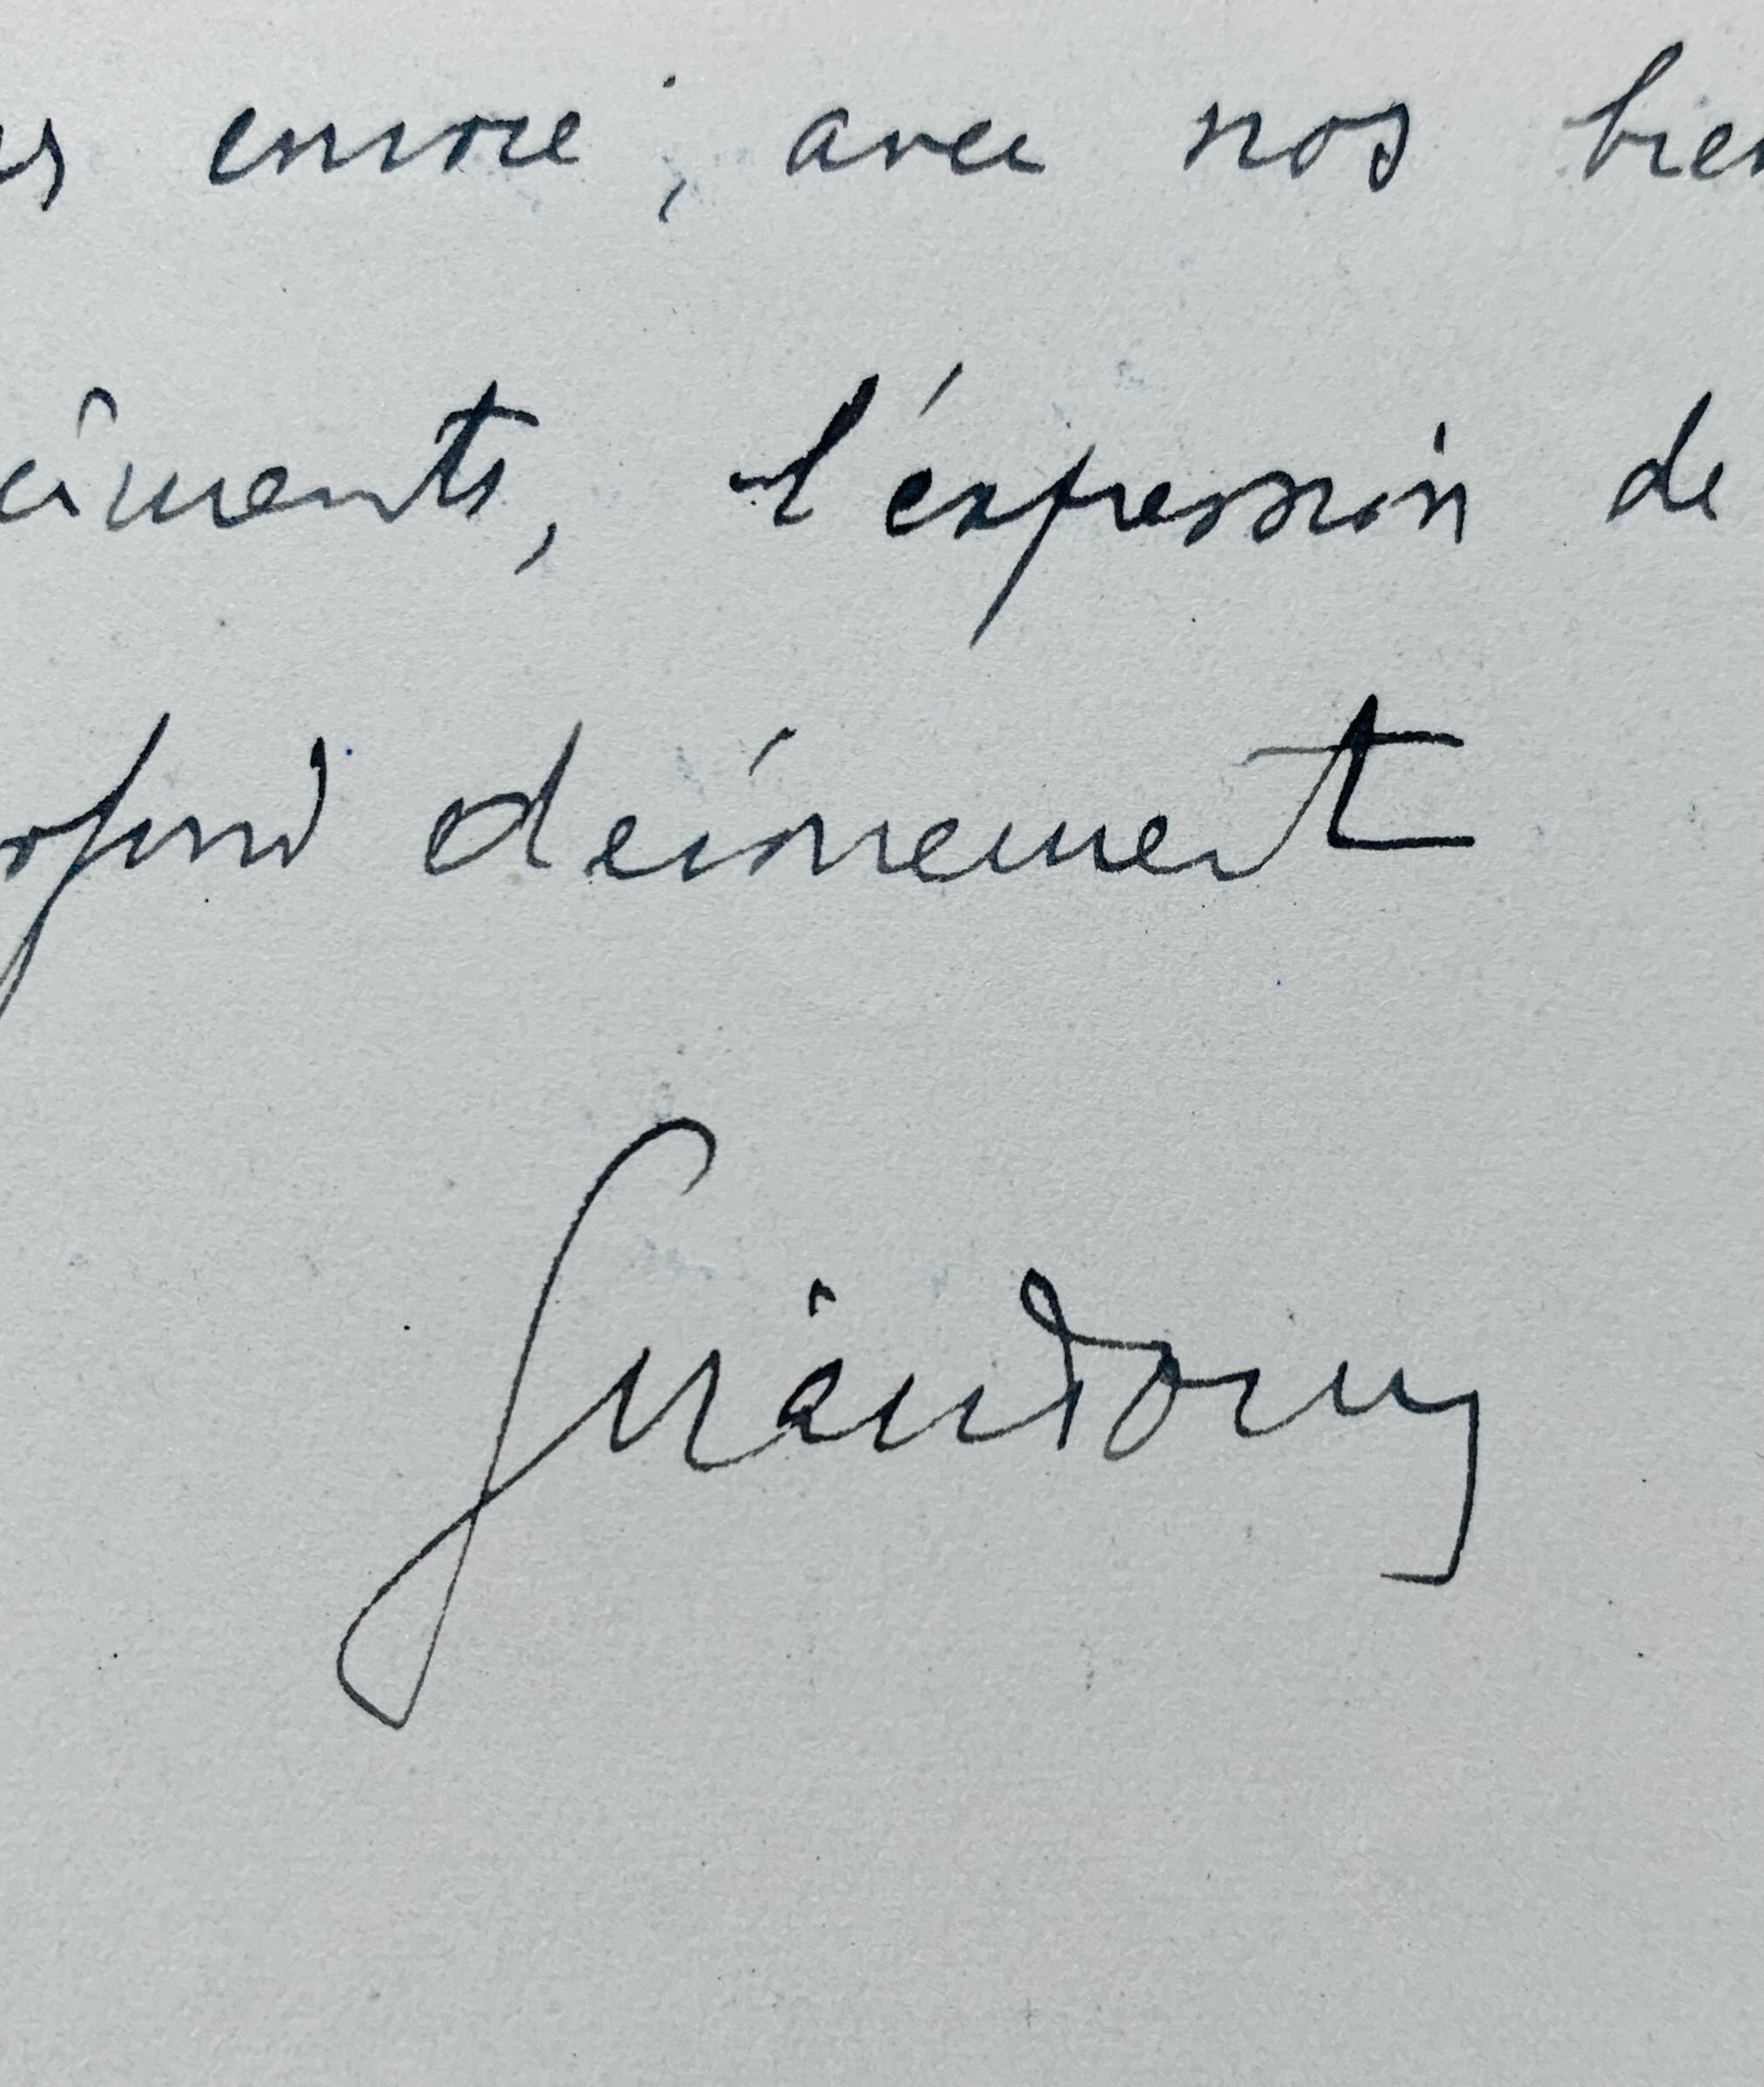 encore, avec nos bien
ciments, l'expression de
ofond dévouement
Giraudoux